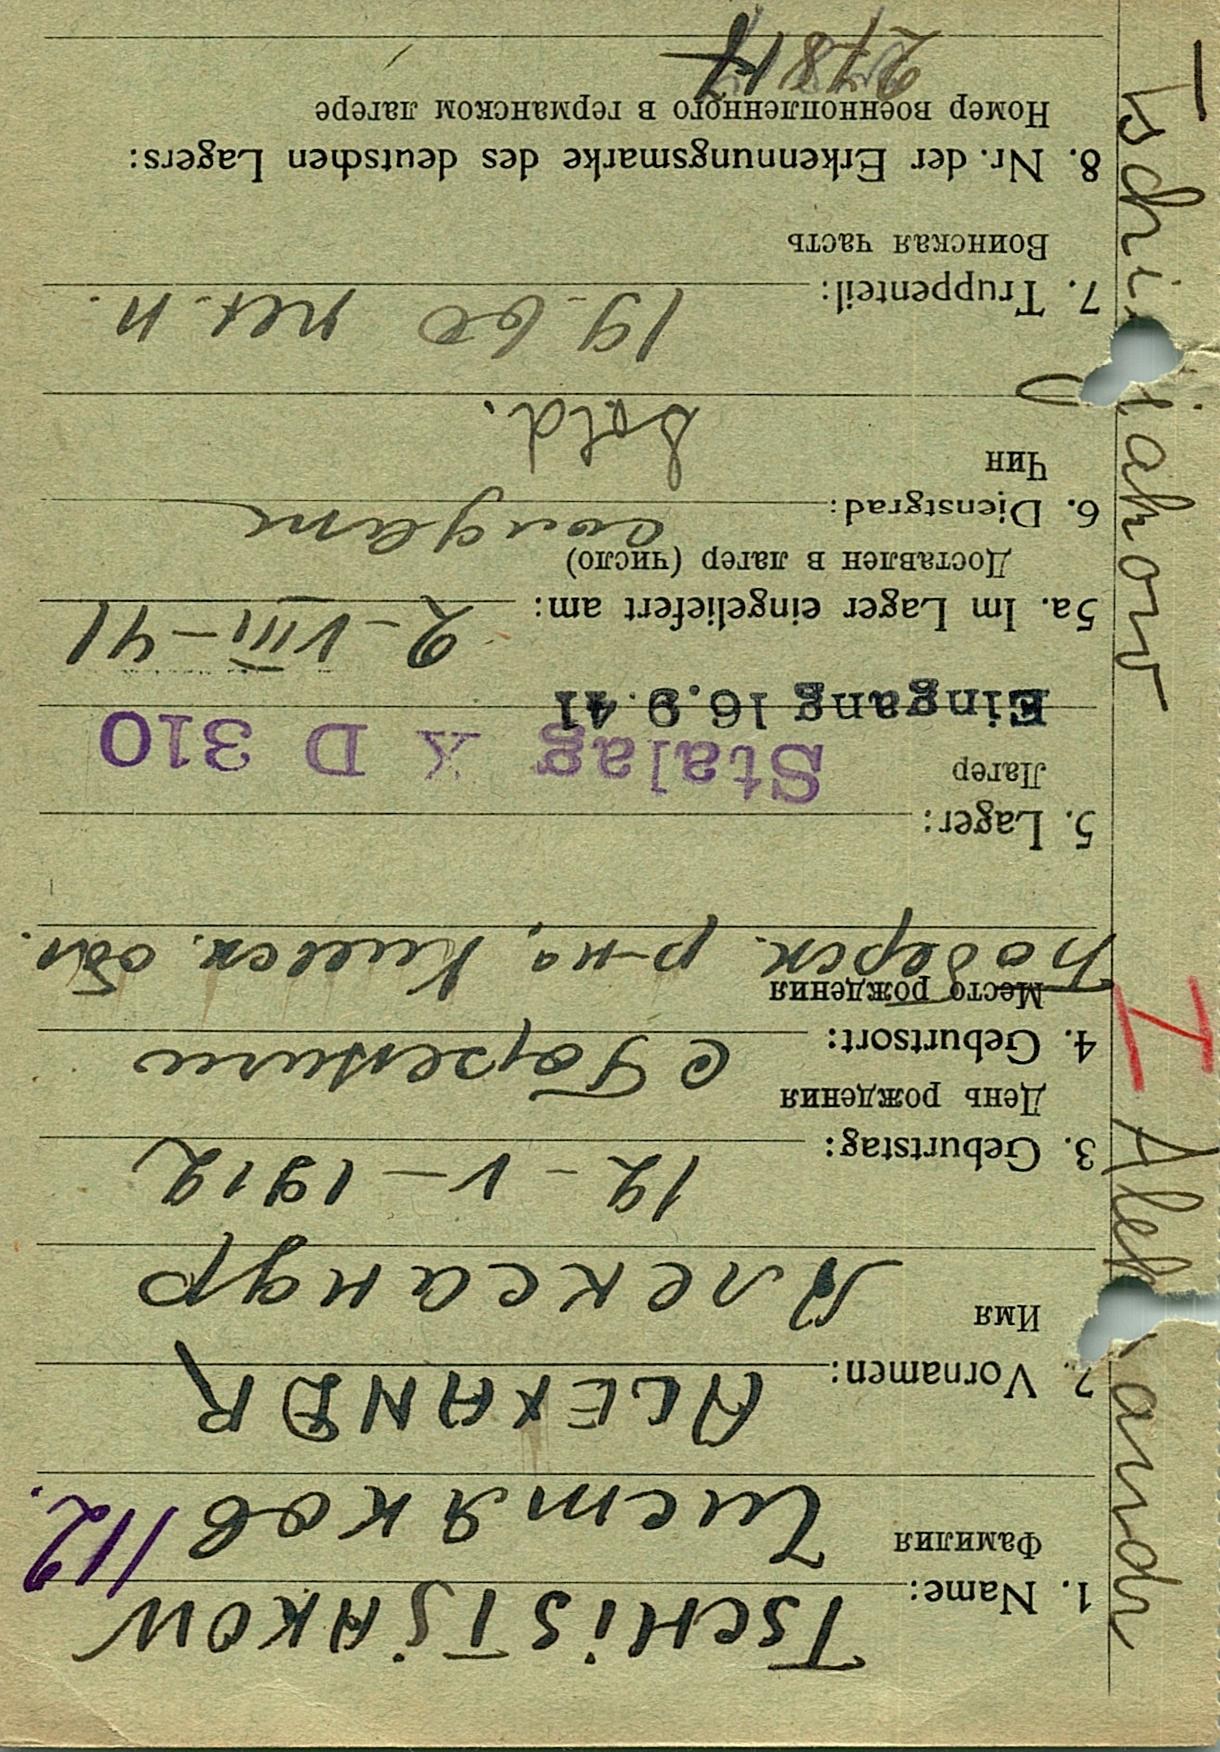 1. Name: TSCHISTJAKOW
Фамилия Чистяков 112.
2. Vornamen: ALEXANDR
Имя Александр
3. Geburtstag: 12 - V - 1912
День рождения
4. Geburtsort: с
Место рождения
р-на, Киевск. обл.
5. Lager:
Лагер Stalag X D 310
Eingang 16.9.41
5a. Im Lager eingeliefert am: 2-VIII-41
Доставлен в лагер (число)
6. Dienstgrad: солдат
Чин Sold.
7. Truppenteil: 19. 60
Воинская часть
8. Nr. der Erkennungsmarke des deutschen Lagers:
Номер военнопленного в германском лагере
I